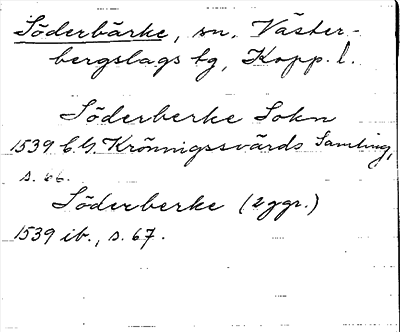 Söderbärke, sn, Väster-
bergslags tg, Kopp. l.
Söderberke Sokn
1539 C.G. Krönnigssvärds Samling,
s. 66.
Söderberke (2 ggr.)
1539 ib., s. 67.